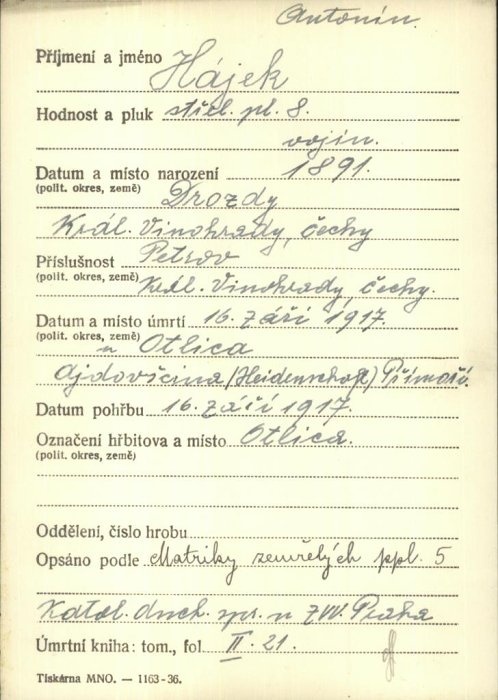 Antonín.
Příjmení a jméno Hájek
Hodnost a pluk střel. pl. 8.
vojín.
Datum a místo narození 1891.
(polit. okres, země) Drozdy
Král. Vinohrady, Čechy
Příslušnost Petrov
(polit. okres, země) Král. Vinohrady, Čechy.
Datum a místo úmrtí 16. září 1917.
(polit. okres, země) u Otlica
Ajdovščina (Heidenschaft) Přímoří.
Datum pohřbu 16. září 1917.
Označení hřbitova a místo Otlica.
(polit. okres, země)
Oddělení, číslo hrobu
Opsáno podle Matriky zemřelých ppl. 5
Katol. duch. spr. u ZVV. Praha
Úmrtní kniha: tom., fol II. 21.
Tiskárna MNO. — 1163-36.